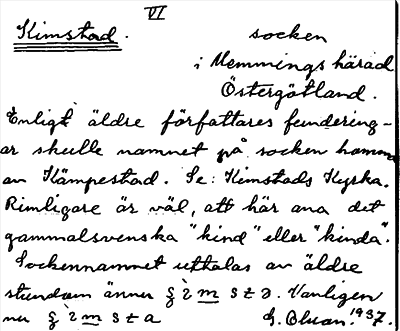 VI
Kimstad. socken
i Memmings härad
Östergötland.
Enligt äldre författares fundering-
ar skulle namnet på socken komma
av Kämpestad. Se: Kimstads Kyrka.
Rimligare är väl, att här ana det
gammalsvenska "kind" eller "kinda".
Sockennamnet uttalas av äldre
stundom ännu
nu
G. Olson. 1937.
Vanligen